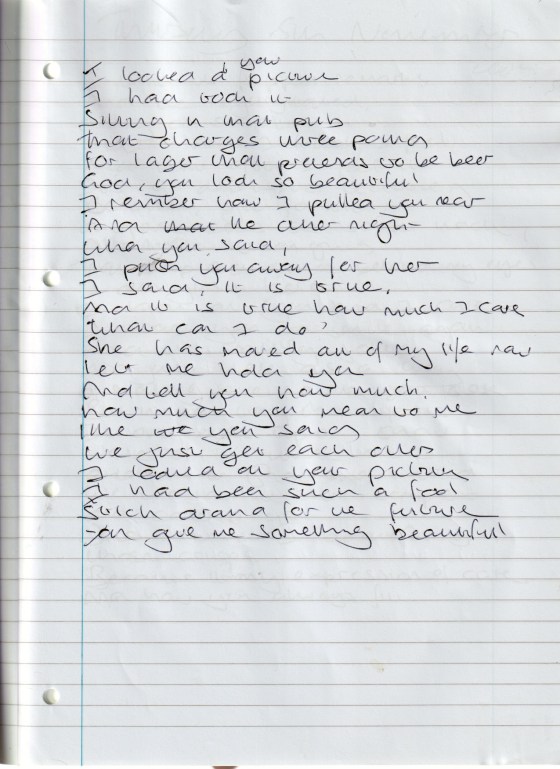 I looked at your picture
I had took it
Sitting in that pub
that charges three pound
for lager that pretends to be beer
God, you look so beautiful
I remember how I pulled you near
And that the other night
what you said,
I push you away for her
I said, it is true,
And it is true how much I care
what can I do?
She has moved out of my life now
let me hold you
And tell you how much.
how much you mean to me
like we you said
we just get each other
I looked at your picture
I had been such a fool
for the future
you give me something beautiful